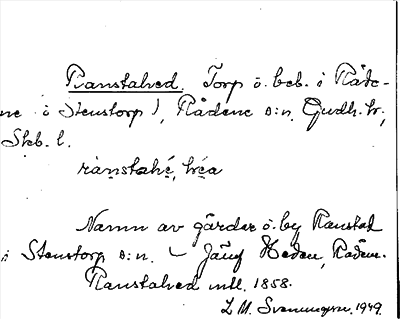 Ranstahed. Torp ö. beb. i Råde-
ne (i Stenstorp), Rådene s:n, Gudh. hr,
Skb. l.
rànstahé, héa
Namn av gårder ö. by Ranstad
i Stenstorp s:n. – Jämf Heden, Råden.
Ranstahed mtl. 1858.
L. M. Svenungsson. 1949.